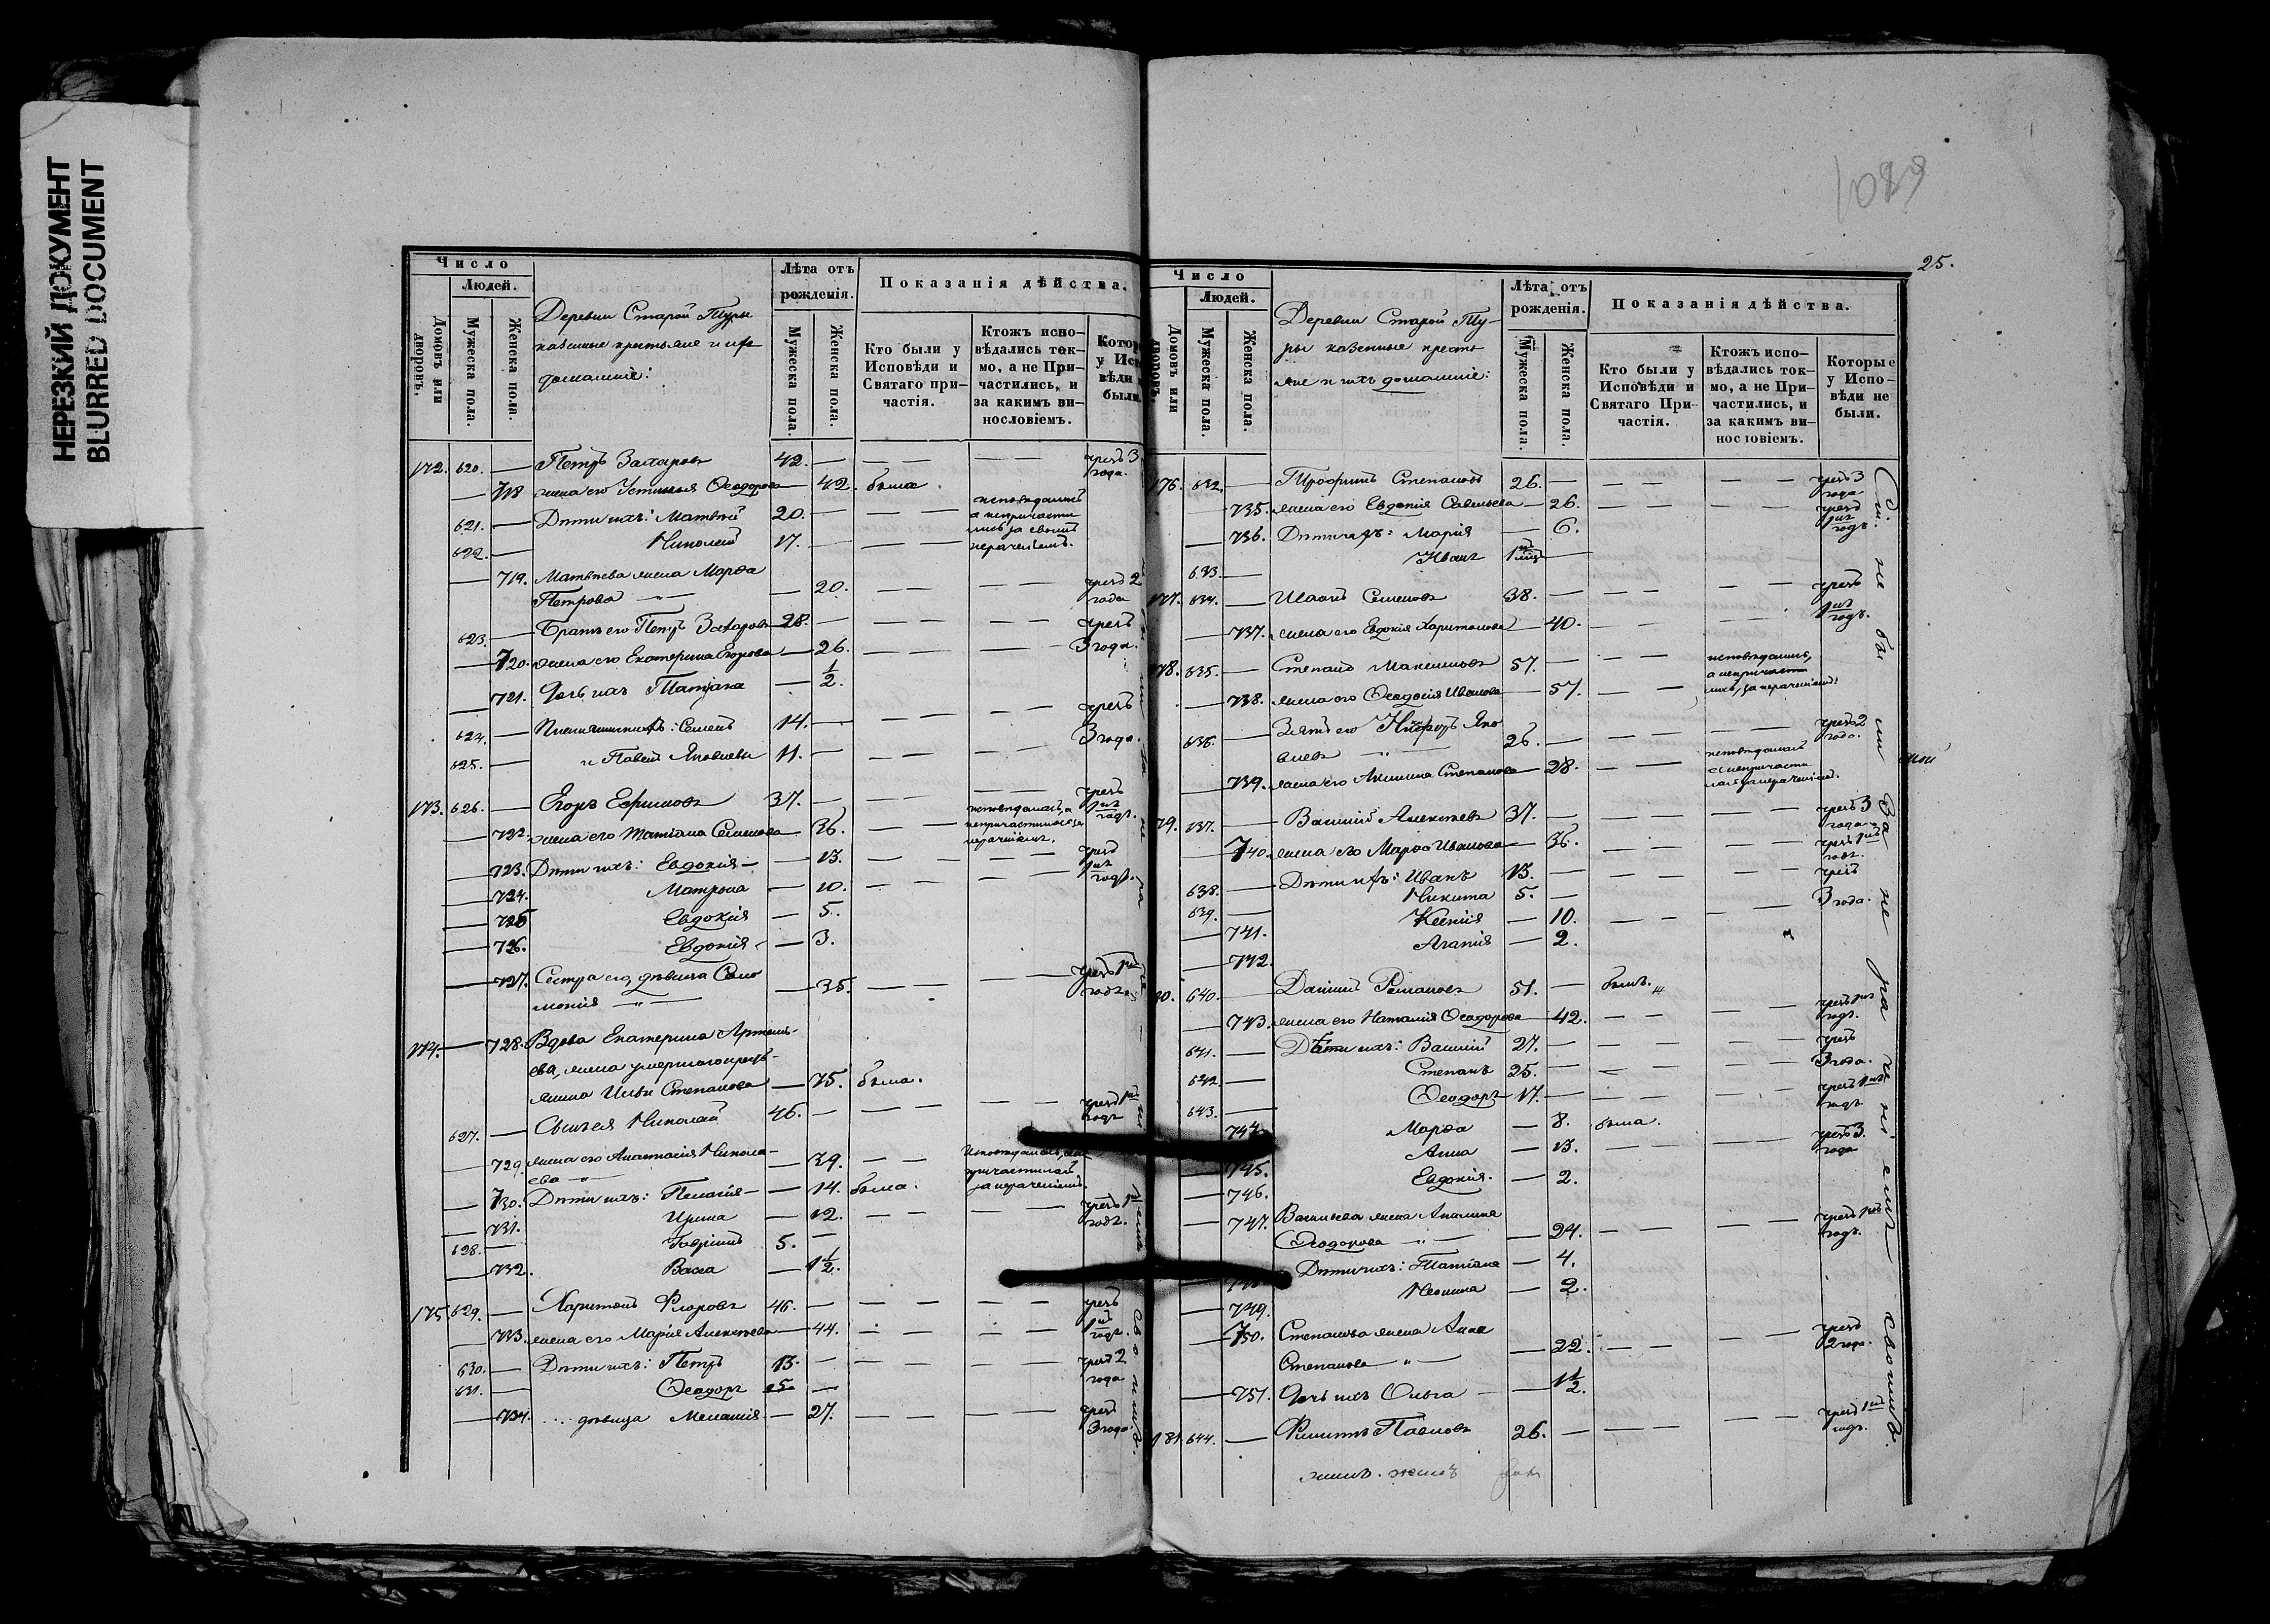 НЕРЕЗКИЙ ДОКУМЕНТ
BLURRED DOCUMENT
1089
25.
Число
Людей.
Домовъ или дворовъ.
Мужеска пола.
Женска пола.
Деревни Старой Туры
казенные крестьяне и ихъ
домашніе:
Лѣта отъ рожденія.
Мужеска пола.
Женска пола.
Показанія дѣйства.
Кто были у Исповѣди и Святаго причастія.
Ктожъ исповѣдались токмо, а не Причастились, и за какимъ винословіемъ.
172. 620. — Петръ Захаровъ 42. — — — — — чрезъ 3 года.
— 718 жена его Устинья Ѳеодорова — 42. была.
621. — Дѣти ихъ: Матвѣй 20. — — — исповѣдались а непричастились за своимъ нераченіемъ.
622. — Николай 17. — — —
— 719. Матвѣева жена Марѳа
Петрова — " — — 20. — — — — чрезъ 2 года
623. — Братъ его Петръ Захаровъ 28. — — — чрезъ 3 года.
— 720. жена его Екатерина Егорова — 26. — — — —
— 721. Дочь ихъ Татіана — 1/2.
624. — Племянники ихъ: Семенъ 14. — — — — — чрезъ 3 года.
625. — и Павелъ Яковлевы 11. — — — — —
173. 626. — Егоръ Ефимовъ 37. — — — — — чрезъ 1нъ годъ.
— 722. жена его Татіана Семенова — 36. — — исповѣдалась, а непричастилась за нераченіемъ.
— 723. Дѣти ихъ: Евдокія — — 13. — — — — чрезъ 1нъ годъ.
— 724. Матрона — 10. — — — —
— 725 Евдокія — 5.
— 726. Евдокія — 3.
— 727. Сестра его, дѣвица Соло
монія — " — — 35. — — — — чрезъ 1нъ годъ.
174. — 728. Вдова Екатерина Артемь-
ева, жена умершаго кресть-
янина Ильи Степанова — 75. была.
627. — Сынъ ея Николай 46. — — — — — чрезъ 1нъ годъ
— 729. жена его Анастасія Никола-
ева — " — — 39. — — Исповѣдалась, не причастилась за нераченіемъ.
— 730. Дѣти ихъ: Пелагія — — 14. была.
— 731. Ирина — 12. — — — — чрезъ 1нъ годъ.
628. — Гавріилъ 5. —
— 732. Васса — 1 1/2.
175. 629. — Харитонъ Флоровъ 46. — — — — — чрезъ 1нъ годъ.
— 733. жена его Марія Алексѣева — 44. — — — —
630. — Дѣти ихъ: Петръ 13. — — — — — чрезъ 2 года
631. — Ѳеодоръ 5 —
— 734. дѣвица Меланія — 27. — — — — чрезъ 3 года.
Число
Людей.
Домовъ или дворовъ.
Мужеска пола.
Женска пола.
Деревни Старой Ту-
ры казенные кресть
яне и ихъ домашніе:
Лѣта отъ рожденія.
Мужеска пола.
Женска пола.
Показанія дѣйства.
Кто были у Исповѣди и Святаго Причастія.
Ктожъ исповѣдались токмо, а не Причастились, и за какимъ винословіемъ.
Которые у Исповѣди не были.
176. 632. — Трофимъ Степановъ 26. — — — — — чрезъ 3 года
— 735. жена его Евдокія Савельева — 26. — — — — чрезъ 1нъ годъ.
— 736. Дѣти ихъ: Марія — 6.
633. — Иванъ 1 мѣц —
177. 634. — Иванъ Семеновъ 38. — — — — — чрезъ 1нъ годъ.
— 737. жена его Евдокія Харитонова — 40. — — — —
178. 635. — Степанъ Максимовъ 57. — — — исповѣдались, а непричастились, за нераченіемъ.
— 738. жена его Ѳеодосія Иванова — 57. — —
636. — Зять его Никифоръ Яко
влевъ — " — 26. — — — — — чрезъ 2 года.
— 739. жена его Акилина Степанова — 28. — — исповѣдалась а непричастилась за нераченіемъ.
79. 637. — Василій Алексѣевъ 37. — — — — чрезъ 3 года
— 740. жена его Марѳа Иванова — 36. — — — — чрезъ 1нъ годъ.
638. — Дѣти ихъ: Иванъ 13. — — — — чрезъ 3 года.
639. — Никита 5. —
— 741. Ксенія — 10. — — — —
— 742. Агапія — 2.
80. 640. — Даніилъ Романовъ 51. — былъ.
— 743. жена его Наталія Ѳеодорова — 42. — — — — чрезъ 1нъ годъ.
641. — Дѣти ихъ: Василій 27. — — — — — чрезъ 3 года.
642. — Степанъ 25. — — — — —
643. — Ѳеодоръ 17. — — — — — чрезъ 1нъ годъ
744. Марѳа — 8. была.
745. Анна — 13. — — — — чрезъ 3 года
— 746. Евдокія. — 2.
— 747. Васильева жена Акилина
Ѳеодорова — " — — 24. — — — — чрезъ 1нъ годъ.
748. Дѣти ихъ: Татіана — 4.
— 749. Неонила — 2.
— 750. Степанова жена Анна
Степанова " — — 22. — — — — чрезъ 2 года.
— 751. Дочь ихъ Ольга — — 1 1/2.
181. 644. — Филиппъ Павловъ 26. — — — — — чрезъ 1нъ годъ.
Сіи не были за нераченіемъ своимъ.